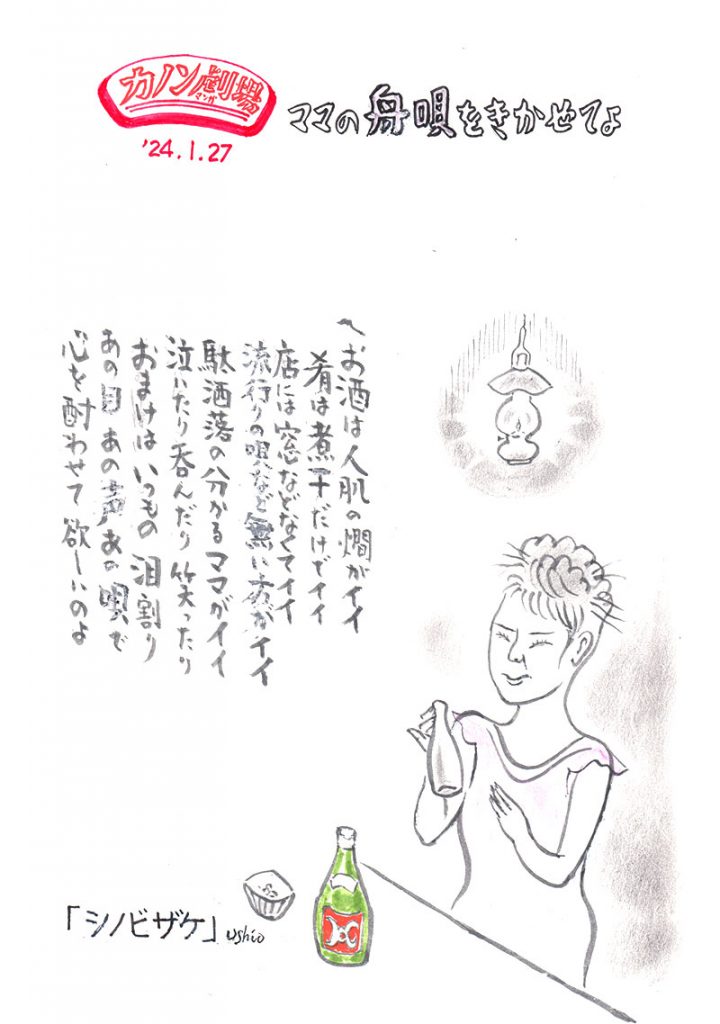 カノン劇場
マンガ
'24.1.27
ママの舟唄をきかせてよ
〽お酒は人肌の燗がイイ
肴は煮干だけでイイ
店には窓などなくてイイ
流行りの唄など無い方がイイ
駄洒落の分かるママがイイ
泣いたり呑んだり笑ったり
おまけはいつもの泪割り
あの目あの声あの唄で
心を酎わせて欲しいのよ
「シノビザケ」
ushio